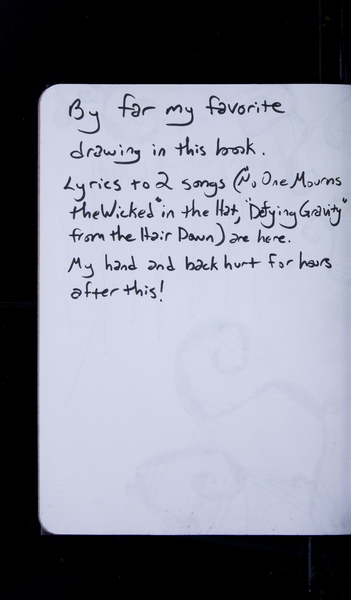 By far my favorite
drawing in this book.
Lyrics to 2 songs ("No One Mourns
the Wicked" in the Hat, "Defying Gravity"
from the Hair Down) are here.
My hand and back hurt for hours
after this!